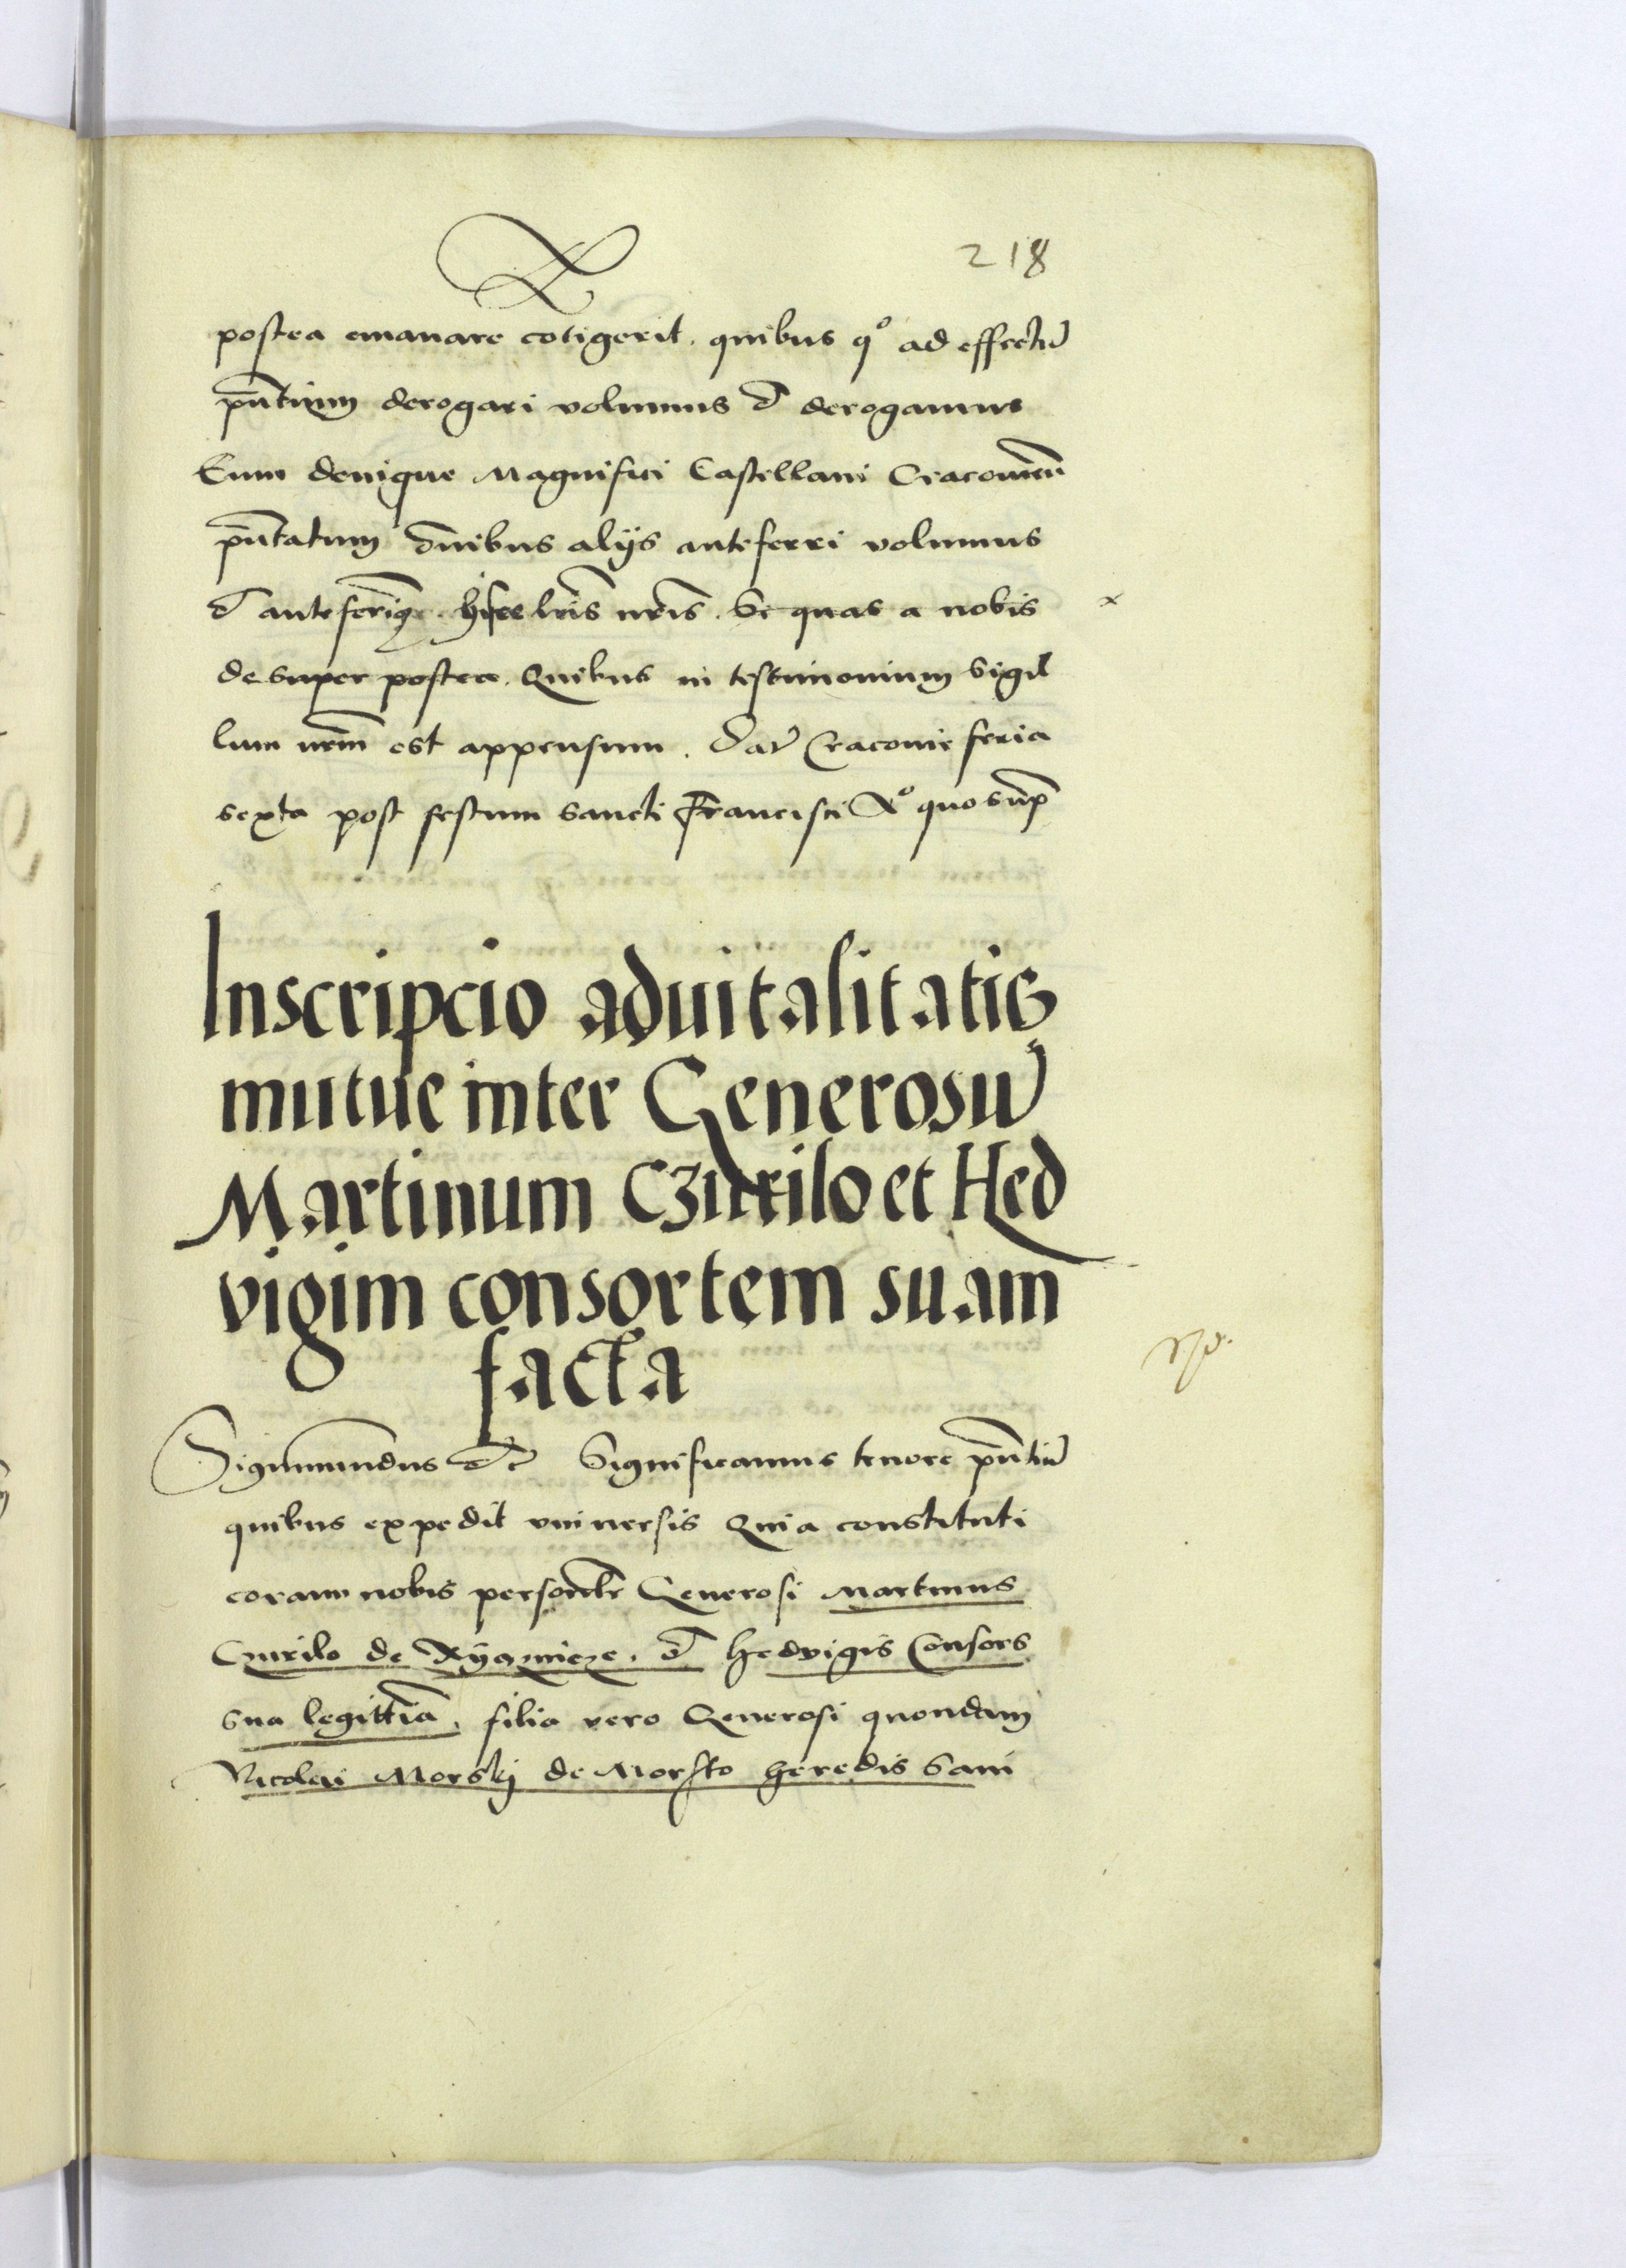 218
postea emanare cõtigerit. quibus qº ad effectũ
pñtium derogari volumus et derogamus
Eum denique Magnifici Castellani Cracovieñ
pñtatum õnibus alijs anteferri volumus
et anteferimq hisce lr̃is nr̃is. Se quas a nobis
de super postea. Quibus in testimonium sigil
lum nr̃m est appensum. Dat̃ Cracovie feria
sexta post festum sancti Francisci Aº quo sup̃
Inscripcio aduitalitatis
mutue inter Generosũ
Martinum Czurilo et Hed
vigim consortem suam
facta
Sigismundus etc Significamus tenore pñtiũ
quibus expedit vniuersis Quia constituti
coram nobis personl̃r Generosi Martinus
Czurilo de et Hedvigis Consors
sua legittĩa, filia vero Generosi quondam
Nicolai Morskj de Morsko heredis Sani